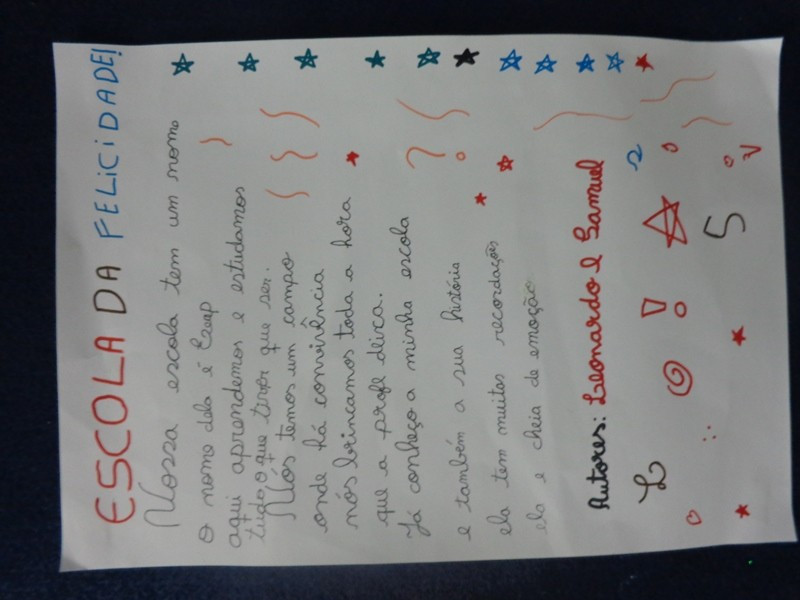 ESCOLA DA FELICIDADE!
Nossa escola tem um nome
O nome dela é Ezeap
aqui aprendemos e estudamos
tudo o que tiver que ser.
Nós temos um campo
onde há convivência
nós brincamos toda a hora
que a profe deixa.
Já conheço a minha escola
e também a sua história
ela tem muitas recordações
ela e cheia de emoção
Autores: Leonardo e Samuel
L S